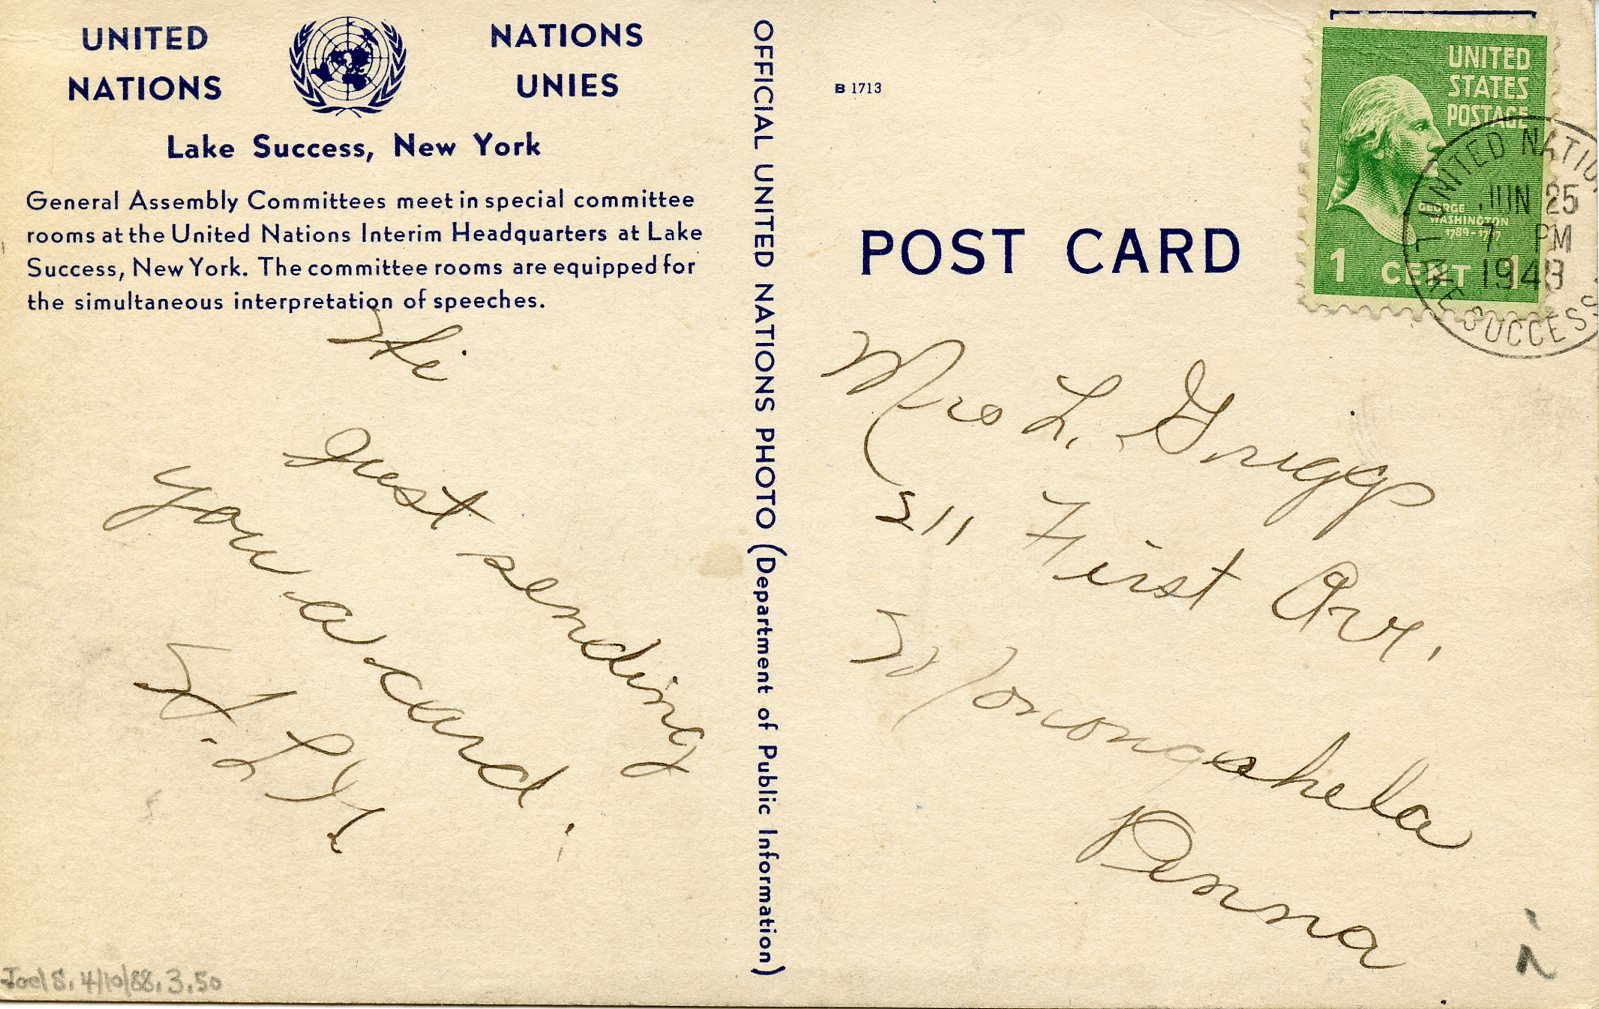 UNITED NATIONS
NATIONS UNIES
Lake Success, New York
General Assembly Committees meet in special committee
rooms at the United Nations Interim Headquarters at Lake
Success, New York. The committee rooms are equipped for
the simultaneous interpretation of speeches.
Hi
Just sending
you a card.
H. L. H.
Joel S, 4/10/88, 3.50
OFFICIAL UNITED NATIONS PHOTO (Department of Public Information)
B 1713
POST CARD
UNITED
STATES
POSTAGE
GEORGE
WASHINGTON
1789-1797
1 CENT 1
UNITED NATIONS
JUN 25
7 PM
1948
LAKE SUCCESS
Mrs L. Griggs
211 First Ave.
Monongahela
Penna